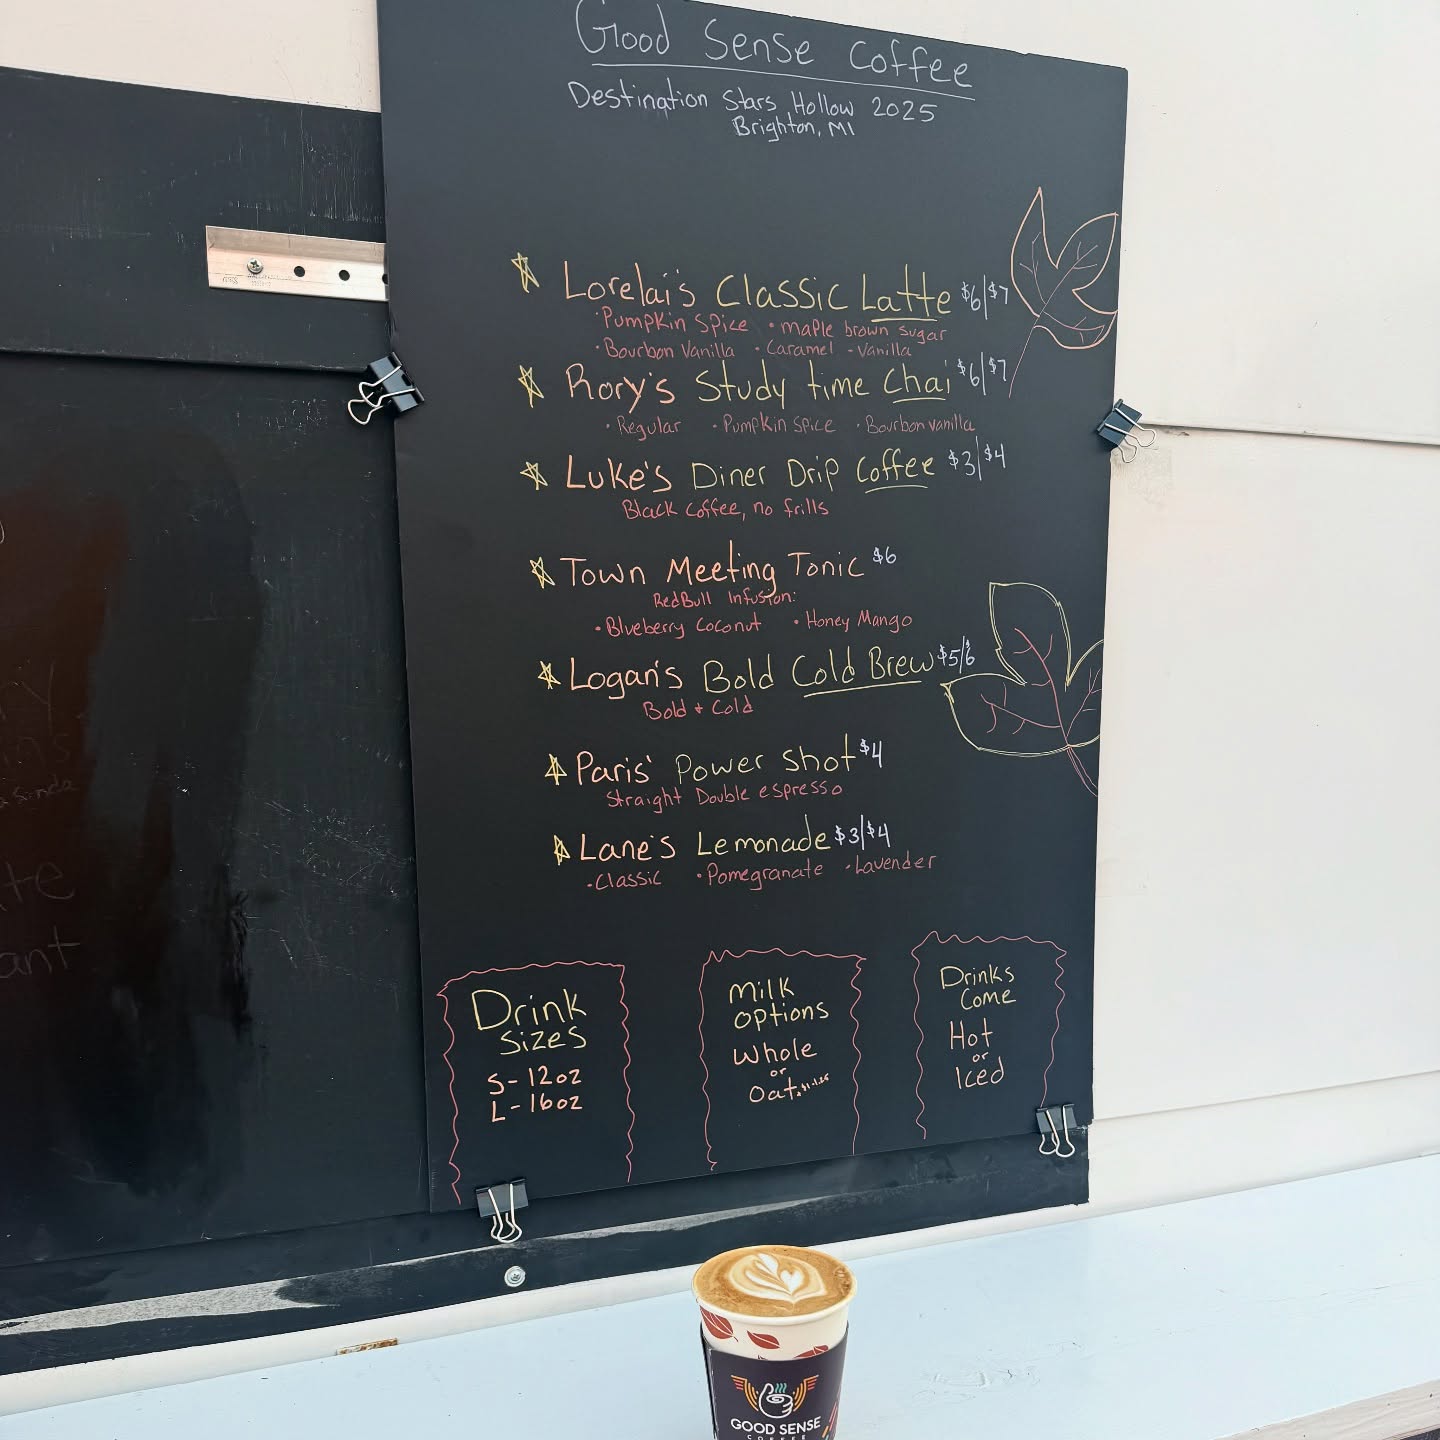 Good Sense Coffee
Destination Stars Hollow 2025
Brighton, MI
Lorelai's Classic Latte $6/$7
· Pumpkin Spice · maple brown sugar
· Bourbon Vanilla · Caramel - Vanilla
Rory's Study time Chai $6/$7
· Regular · Pumpkin Spice · Bourbon vanilla
Luke's Diner Drip Coffee $3/$4
Black coffee, no frills
Town Meeting Tonic $6
RedBull Infusion:
· Blueberry Coconut · Honey Mango
Logan's Bold Cold Brew $5/6
Bold + Cold
Paris' Power Shot $4
Straight Double espresso
Lane's Lemonade $3/$4
· Classic · Pomegranate · Lavender
Drink
Sizes
S - 12oz
L - 16oz
Milk
Options
Whole
or
Oat
Drinks
Come
Hot
or
Iced
GOOD SENSE
COFFEE